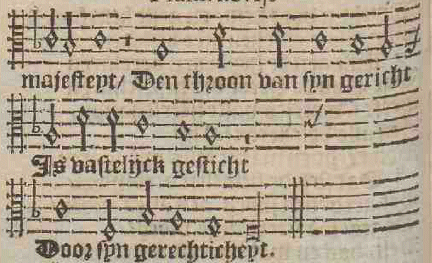 majesteyt/ Den throon van syn gericht
Is vastelijck gesticht
Door syn gerechticheyt.